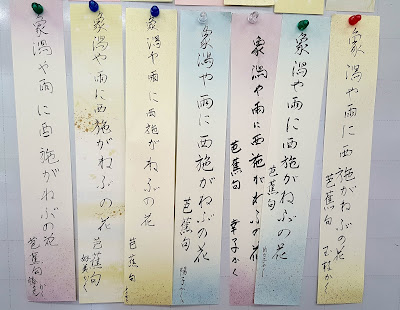 象潟や雨に西施がねぶの花
芭蕉句 玉枝かく
象潟や雨に西施がねぶの花
芭蕉句
象潟や雨に西施がねぶの花
芭蕉句 幸子かく
象潟や雨に西施がねぶの花
芭蕉句
象潟や雨に西施がねぶの花
芭蕉句
象潟や雨に西施がねぶの花
芭蕉句
象潟や雨に西施がねぶの花
芭蕉句